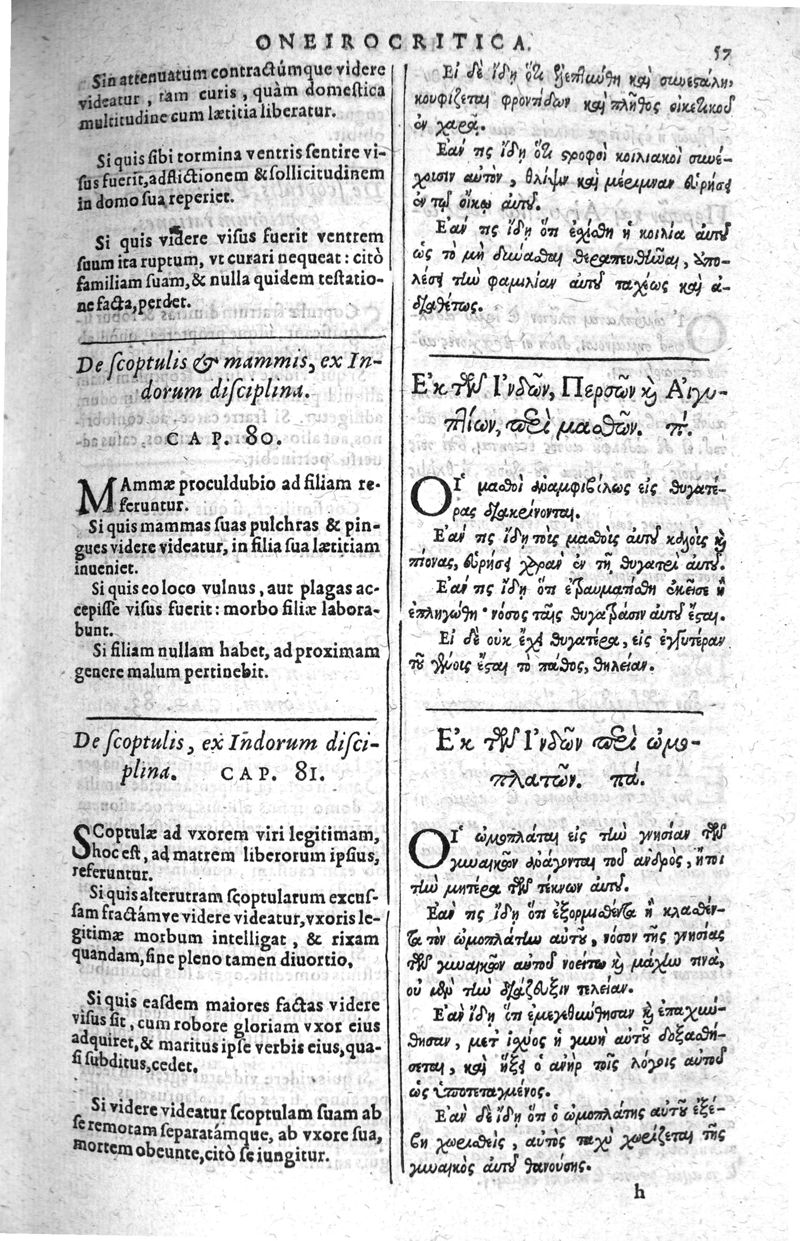 ONEIROCRITICA.
57
Sin attenuatum contractúmque videre
videatur, tam curis, quàm domestica
multitudine cum lætitia liberatur.
Si quis sibi tormina ventris sentire vi-
sus fuerit, adflictionem & sollicitudinem
in domo sua reperiet.
Si quis videre visus fuerit ventrem
suum ita ruptum, vt curari nequeat: citò
familiam suam, & nulla quidem testatio-
ne facta, perdet.
De scoptulis & mammis, ex In-
dorum disciplina.
CAP. 80.
MAmmæ proculdubio ad filiam re-
feruntur.
Si quis mammas suas pulchras & pin-
gues videre videatur, in filia sua lætitiam
inueniet.
Si quis eo loco vulnus, aut plagas ac-
cepisse visus fuerit: morbo filiæ labora-
bunt.
Si filiam nullam habet, ad proximam
genere malum pertinebit.
De scoptulis, ex Indorum disci-
plina. CAP. 81.
SCoptulæ ad vxorem viri legitimam,
hoc est, ad matrem liberorum ipsius,
referuntur.
Si quis alterutram scoptularum excus-
sam fractámve videre videatur, vxoris le-
gitimæ morbum intelligat, & rixam
quandam, sine pleno tamen diuortio.
Si quis easdem maiores factas videre
visus sit, cum robore gloriam vxor eius
adquiret, & maritus ipse verbis eius, qua-
si subditus, cedet.
Si videre videatur scoptulam suam ab
se remotam separatámque, ab vxore sua,
mortem obeunte, citò se iungitur.
Εἰ δὲ ἴδῃ ὅτι ἐξεπτώθη καὶ συνεστάλη,
κουφίζεται φροντίδων καὶ πλῆθος οἰκετικοῦ
ἐν χαρᾷ.
Ἐάν τις ἴδῃ ὅτι στρόφοι κοιλιακοὶ συνέ-
χουσιν αὐτὸν, θλίψιν καὶ μέριμναν εὑρήσει
ἐν τῷ οἴκῳ αὐτοῦ.
Ἐάν τις ἴδῃ ὅτι ἐσχίσθη ἡ κοιλία αὐτοῦ
ὡς τὸ μὴ δύνασθαι θεραπευθῆναι, ἀπο-
λέσει τὴν φαμιλίαν αὐτοῦ ταχέως καὶ ἀ-
διαθέτως.
Ἐκ τῶν Ἰνδῶν, Περσῶν καὶ Αἰγυ-
πτίων, περὶ μασθῶν. π΄.
Οἱ μασθοὶ ἀναμφιβόλως εἰς θυγατέ-
ρας διακρίνονται.
Ἐάν τις ἴδῃ τοὺς μασθοὺς αὐτοῦ καλοὺς καὶ
πίονας, εὑρήσει χαρὰν ἐν τῇ θυγατρὶ αὐτοῦ.
Ἐάν τις ἴδῃ ὅτι ἐτραυματίσθη ἐκεῖσε ἢ
ἐπληγώθη· νόσος ταῖς θυγατράσιν αὐτοῦ ἔσται.
Εἰ δὲ οὐκ ἔχει θυγατέρα, εἰς ἐγγυτέραν
τοῦ γένους ἔσται τὸ πάθος, θηλείαν.
Ἐκ τῶν Ἰνδῶν περὶ ὠμο-
πλατῶν. πά.
Οἱ ὠμοπλάται εἰς τὴν γνησίαν τῶν
γυναικῶν ἀνάγονται τοῦ ἀνδρὸς, ἤτοι
τὴν μητέρα τῶν τέκνων αὐτοῦ.
Ἐάν τις ἴδῃ ὅτι ἐξορμισθέντα ἢ κλασθέν-
τα τὸν ὠμοπλάτην αὐτοῦ, νόσον τῆς γνησίας
τῶν γυναικῶν αὐτοῦ νοείτω καὶ μάχην τινὰ,
οὐ μὴν διάζευξιν τελείαν.
Ἐὰν ἴδῃ ὅτι ἐμεγεθύνθησαν καὶ ἐπαχύν-
θησαν, μετ᾽ ἰσχύος ἡ γυνὴ αὐτοῦ δοξασθή-
σεται, καὶ ἥξει ὁ ἀνὴρ τοῖς λόγοις αὐτοῦ
ὡς ὑποτεταγμένος.
Ἐὰν δὲ ἴδῃ ὅτι ὁ ὠμοπλάτης αὐτοῦ ἐξέ-
βη χωρισθεὶς, αὐτὸς ταχὺ χωρίζεται τῆς
γυναικὸς αὐτοῦ θανούσης.
h